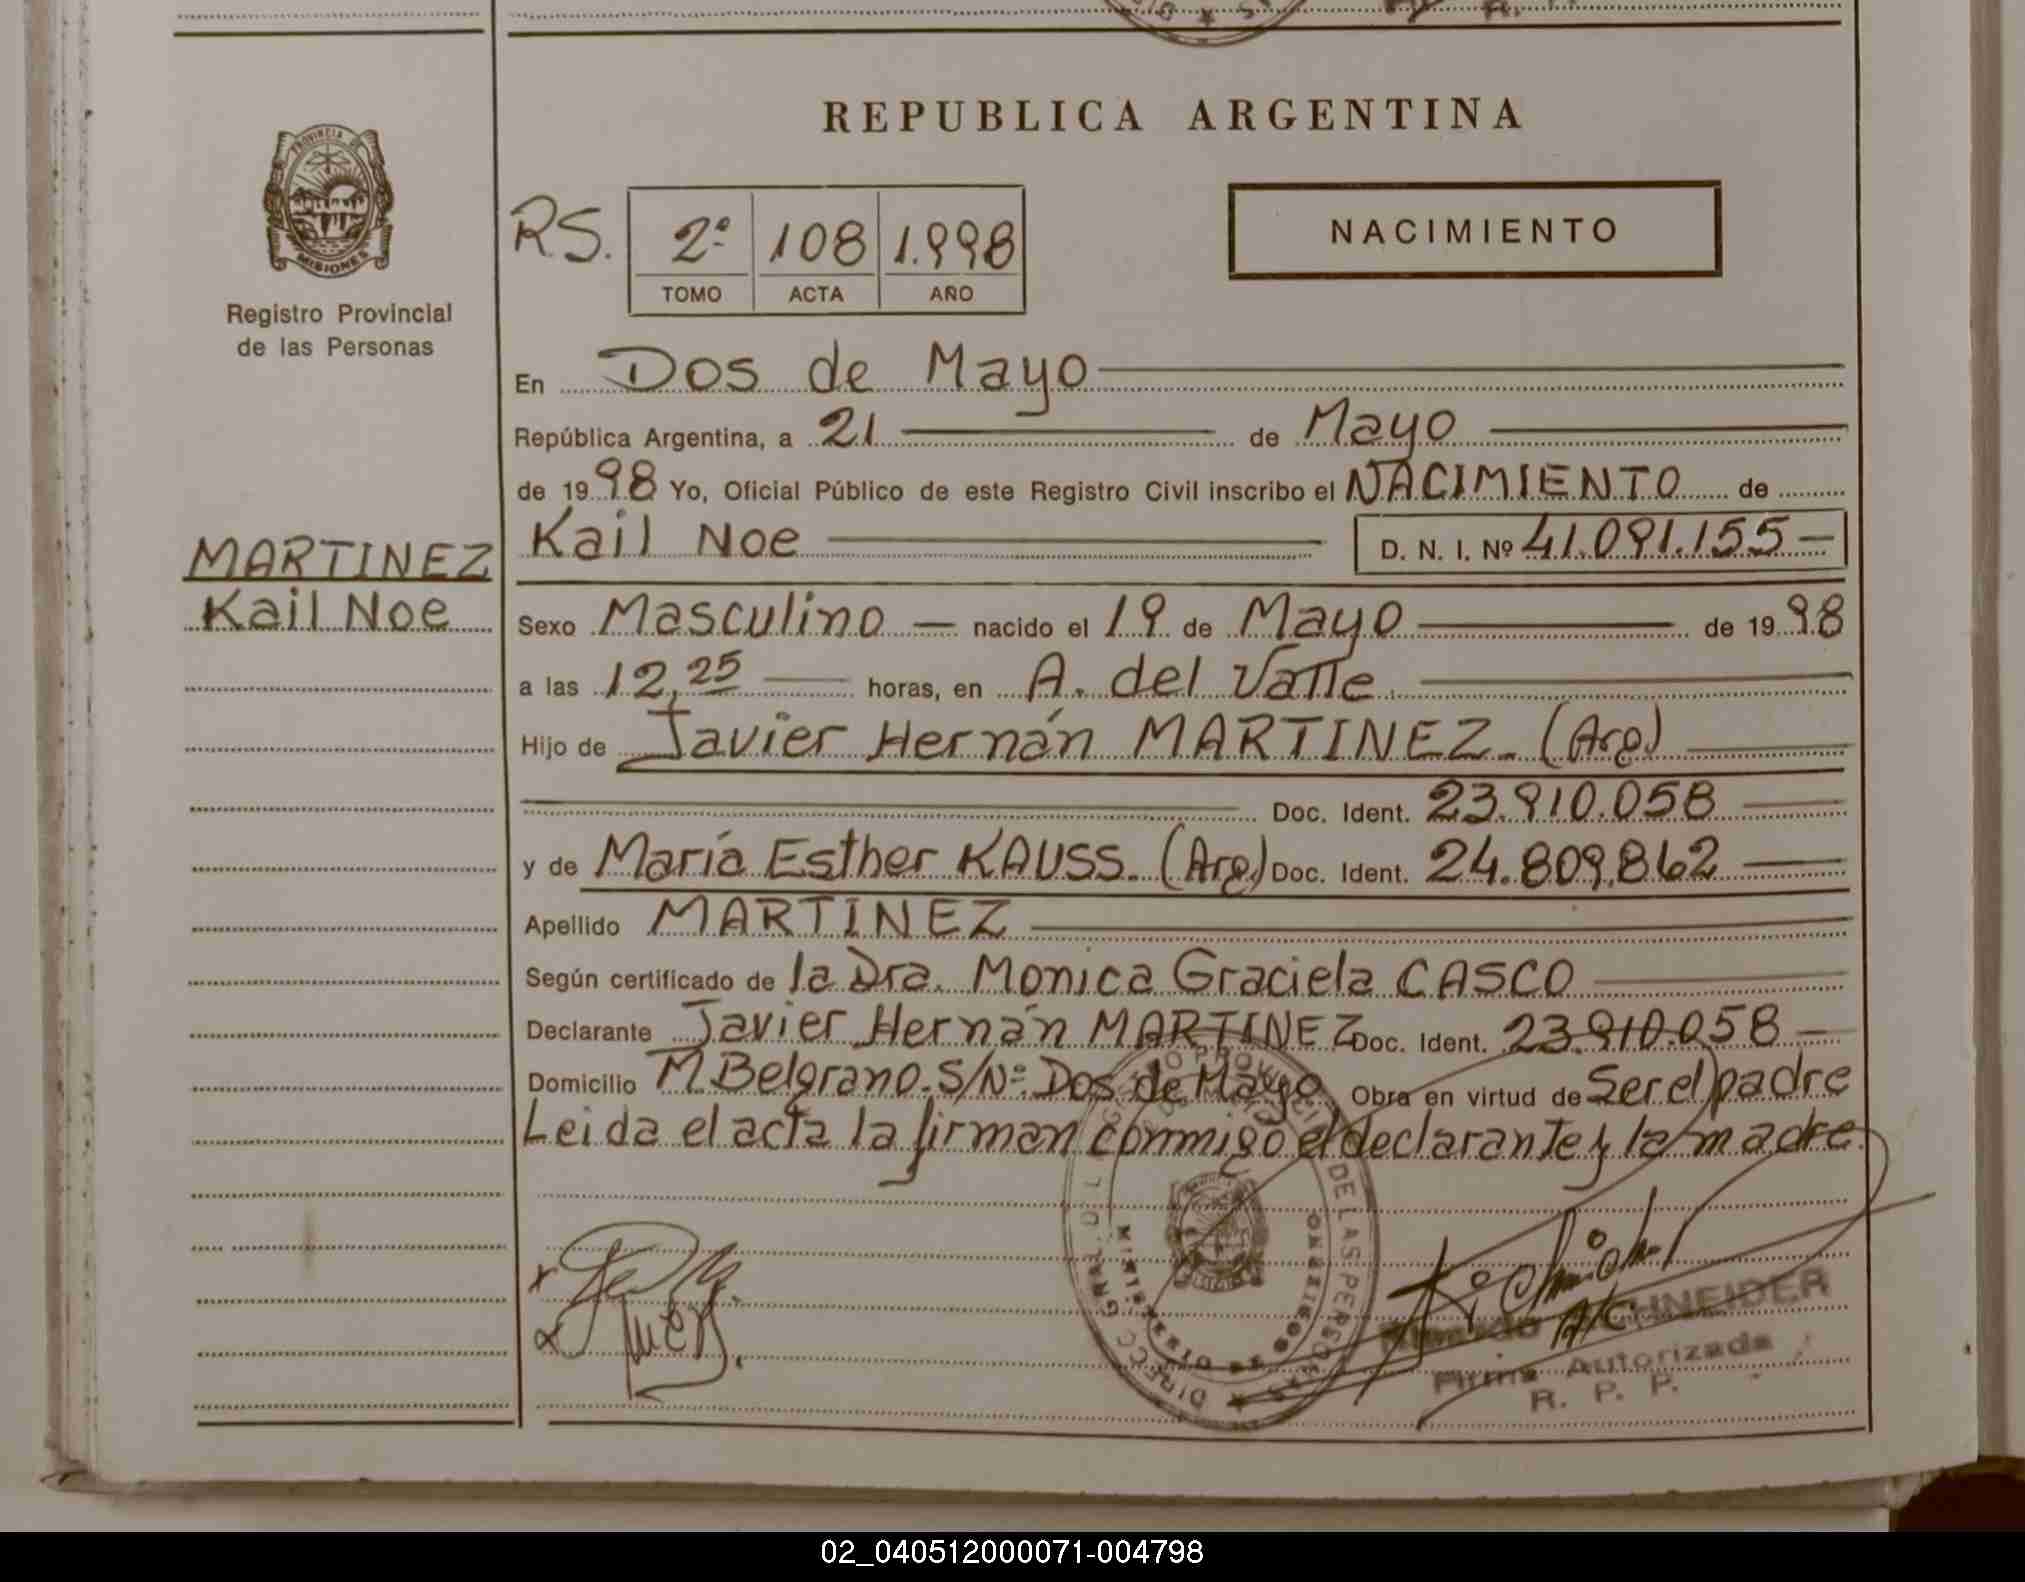 REPUBLICA ARGENTINA
PROVINCIA DE
MISIONES
Registro Provincial
de las Personas
RS.
2º 108 1.998
TOMO ACTA AÑO
NACIMIENTO
En Dos de Mayo
República Argentina, a 21 de Mayo
de 1998 Yo, Oficial Público de este Registro Civil inscribo el NACIMIENTO de
MARTINEZ
Kail Noe
Kail Noe D. N. I. Nº 41.091.155
Sexo Masculino nacido el 19 de Mayo de 1998
a las 12,25 horas, en A. del Valle
Hijo de Javier Hernán MARTINEZ. (Arg)
Doc. Ident. 23.910.058
y de María Esther KAUSS. (Arg) Doc. Ident. 24.809.862
Apellido MARTINEZ
Según certificado de la Dra. Monica Graciela CASCO
Declarante Javier Hernán MARTINEZ Doc. Ident. 23.910.058
Domicilio M. Belgrano. S/Nº Dos de Mayo Obra en virtud de Ser el padre
Leida el acta la firman conmigo el declarante y la madre.
A/C
SCHNEIDER
Firma Autorizada
R. P. P.
02_040512000071-004798